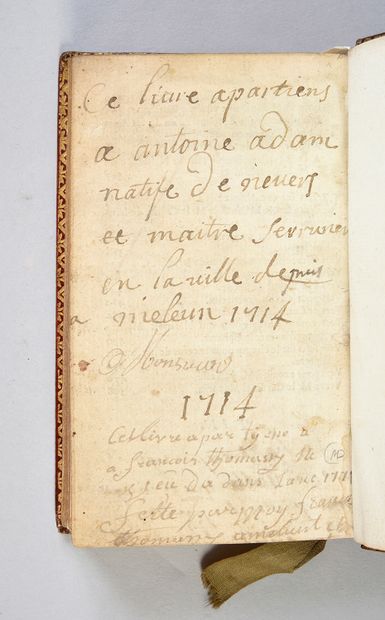 Ce liure apartiens
a antoine adam
natife De nevers
et maitre serrurier
en la ville depuis
a meleun 1714
Monsieur
1714
Cet livre apartyeno a
a francois thomany
dans lanc 177
fette par moy
thomany